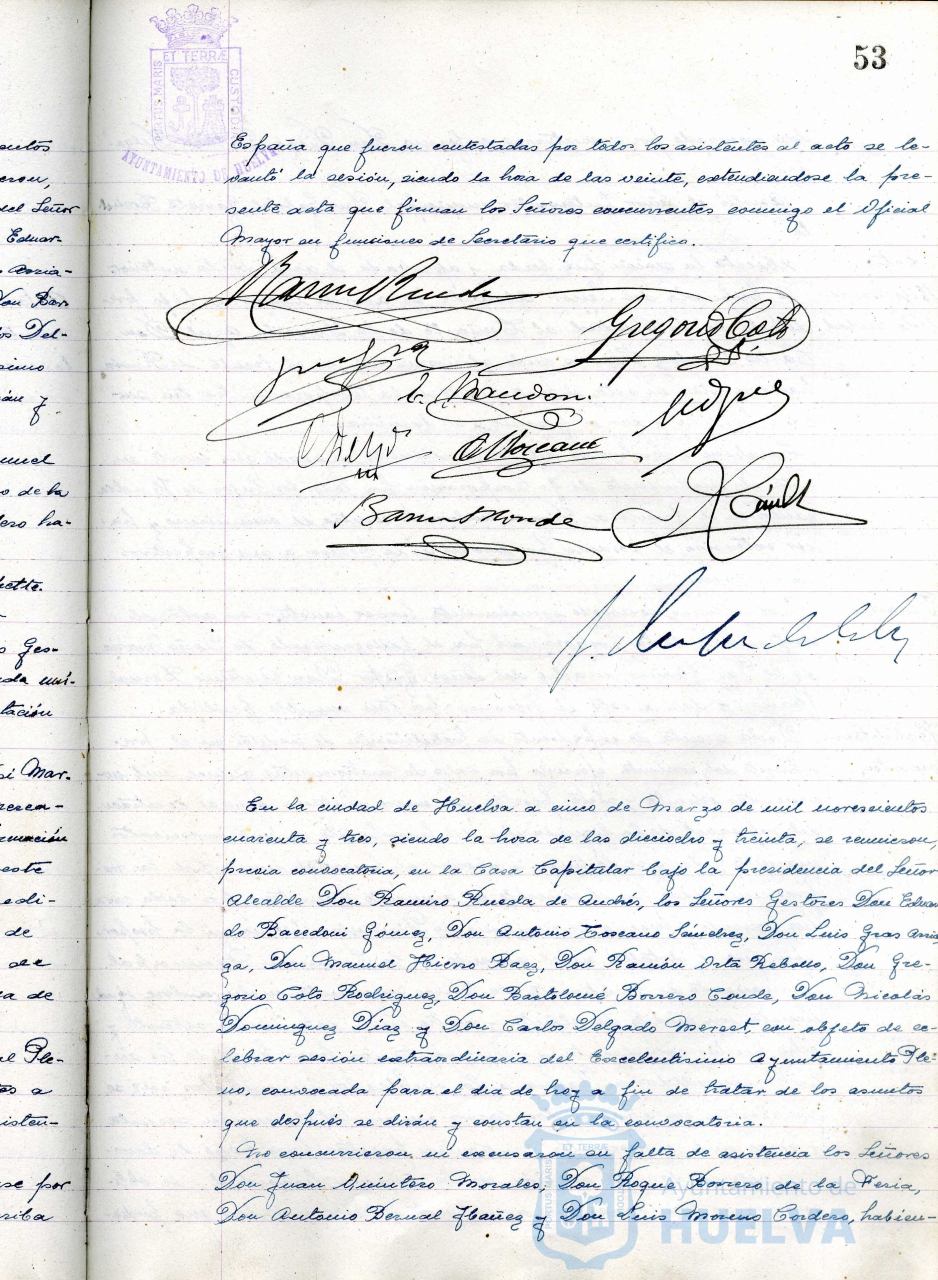 53
PORTUS MARIS ET TERRÆ CUSTODIA
AYUNTAMIENTO DE HUELVA
España que fueron contestadas por todos los asistentes al acto se le-
vantó la sesión, siendo la hora de las veinte, extendiendose la pre-
sente acta que firman los Señores concurrentes conmigo el Oficial
Mayor en funciones de Secretario que certifico.
Gregorio Coto
En la ciudad de Huelva a cinco de Marzo de mil novescientos
cuarenta y tres, siendo la hora de las dieciocho y treinta, se reunieron,
previa convocatoria, en la Casa Capitular bajo la presidencia del Señor
Alcalde Don Ramiro Rueda de Andrés, los Señores Gestores Don Eduar
do Bacedoni Gómez, Don Antonio Toscano Sánchez, Don Luis Gras Arria
ga, Don Manuel Hierro Baez, Don Ramón Orta Rebollo, Don Gre-
gorio Coto Rodriguez, Don Bartolomé Borrero Conde, Don Nicolás
Dominguez Díaz y Don Carlos Delgado Merset, con objeto de ce-
lebrar sesión extraordinaria del Excelentisimo Ayuntamiento Ple-
no, convocada para el dia de hoy a fin de tratar de los asuntos
que después se dirán y constan en la convocatoria.
No concurrieron ni excusaron su falta de asistencia los Señores
Don Juan Quintero Morales, Don Roque Borrero de la Feria,
Don Antonio Bernal Ybañez y Don Luis Moreno Cordero, habien-
ET TERRÆ
PORTUS MARIS
Ayuntamiento de
HUELVA
entos
eron,
del Señor
Eduar-
Arria-
Don Bar-
os Del-
simo
y
nuel
o de la
dero ha-
s Ges-
tación
si Mar-
resen-
rmación
este
edi-
de
de
al Ple-
os a
isten-
se por
riba